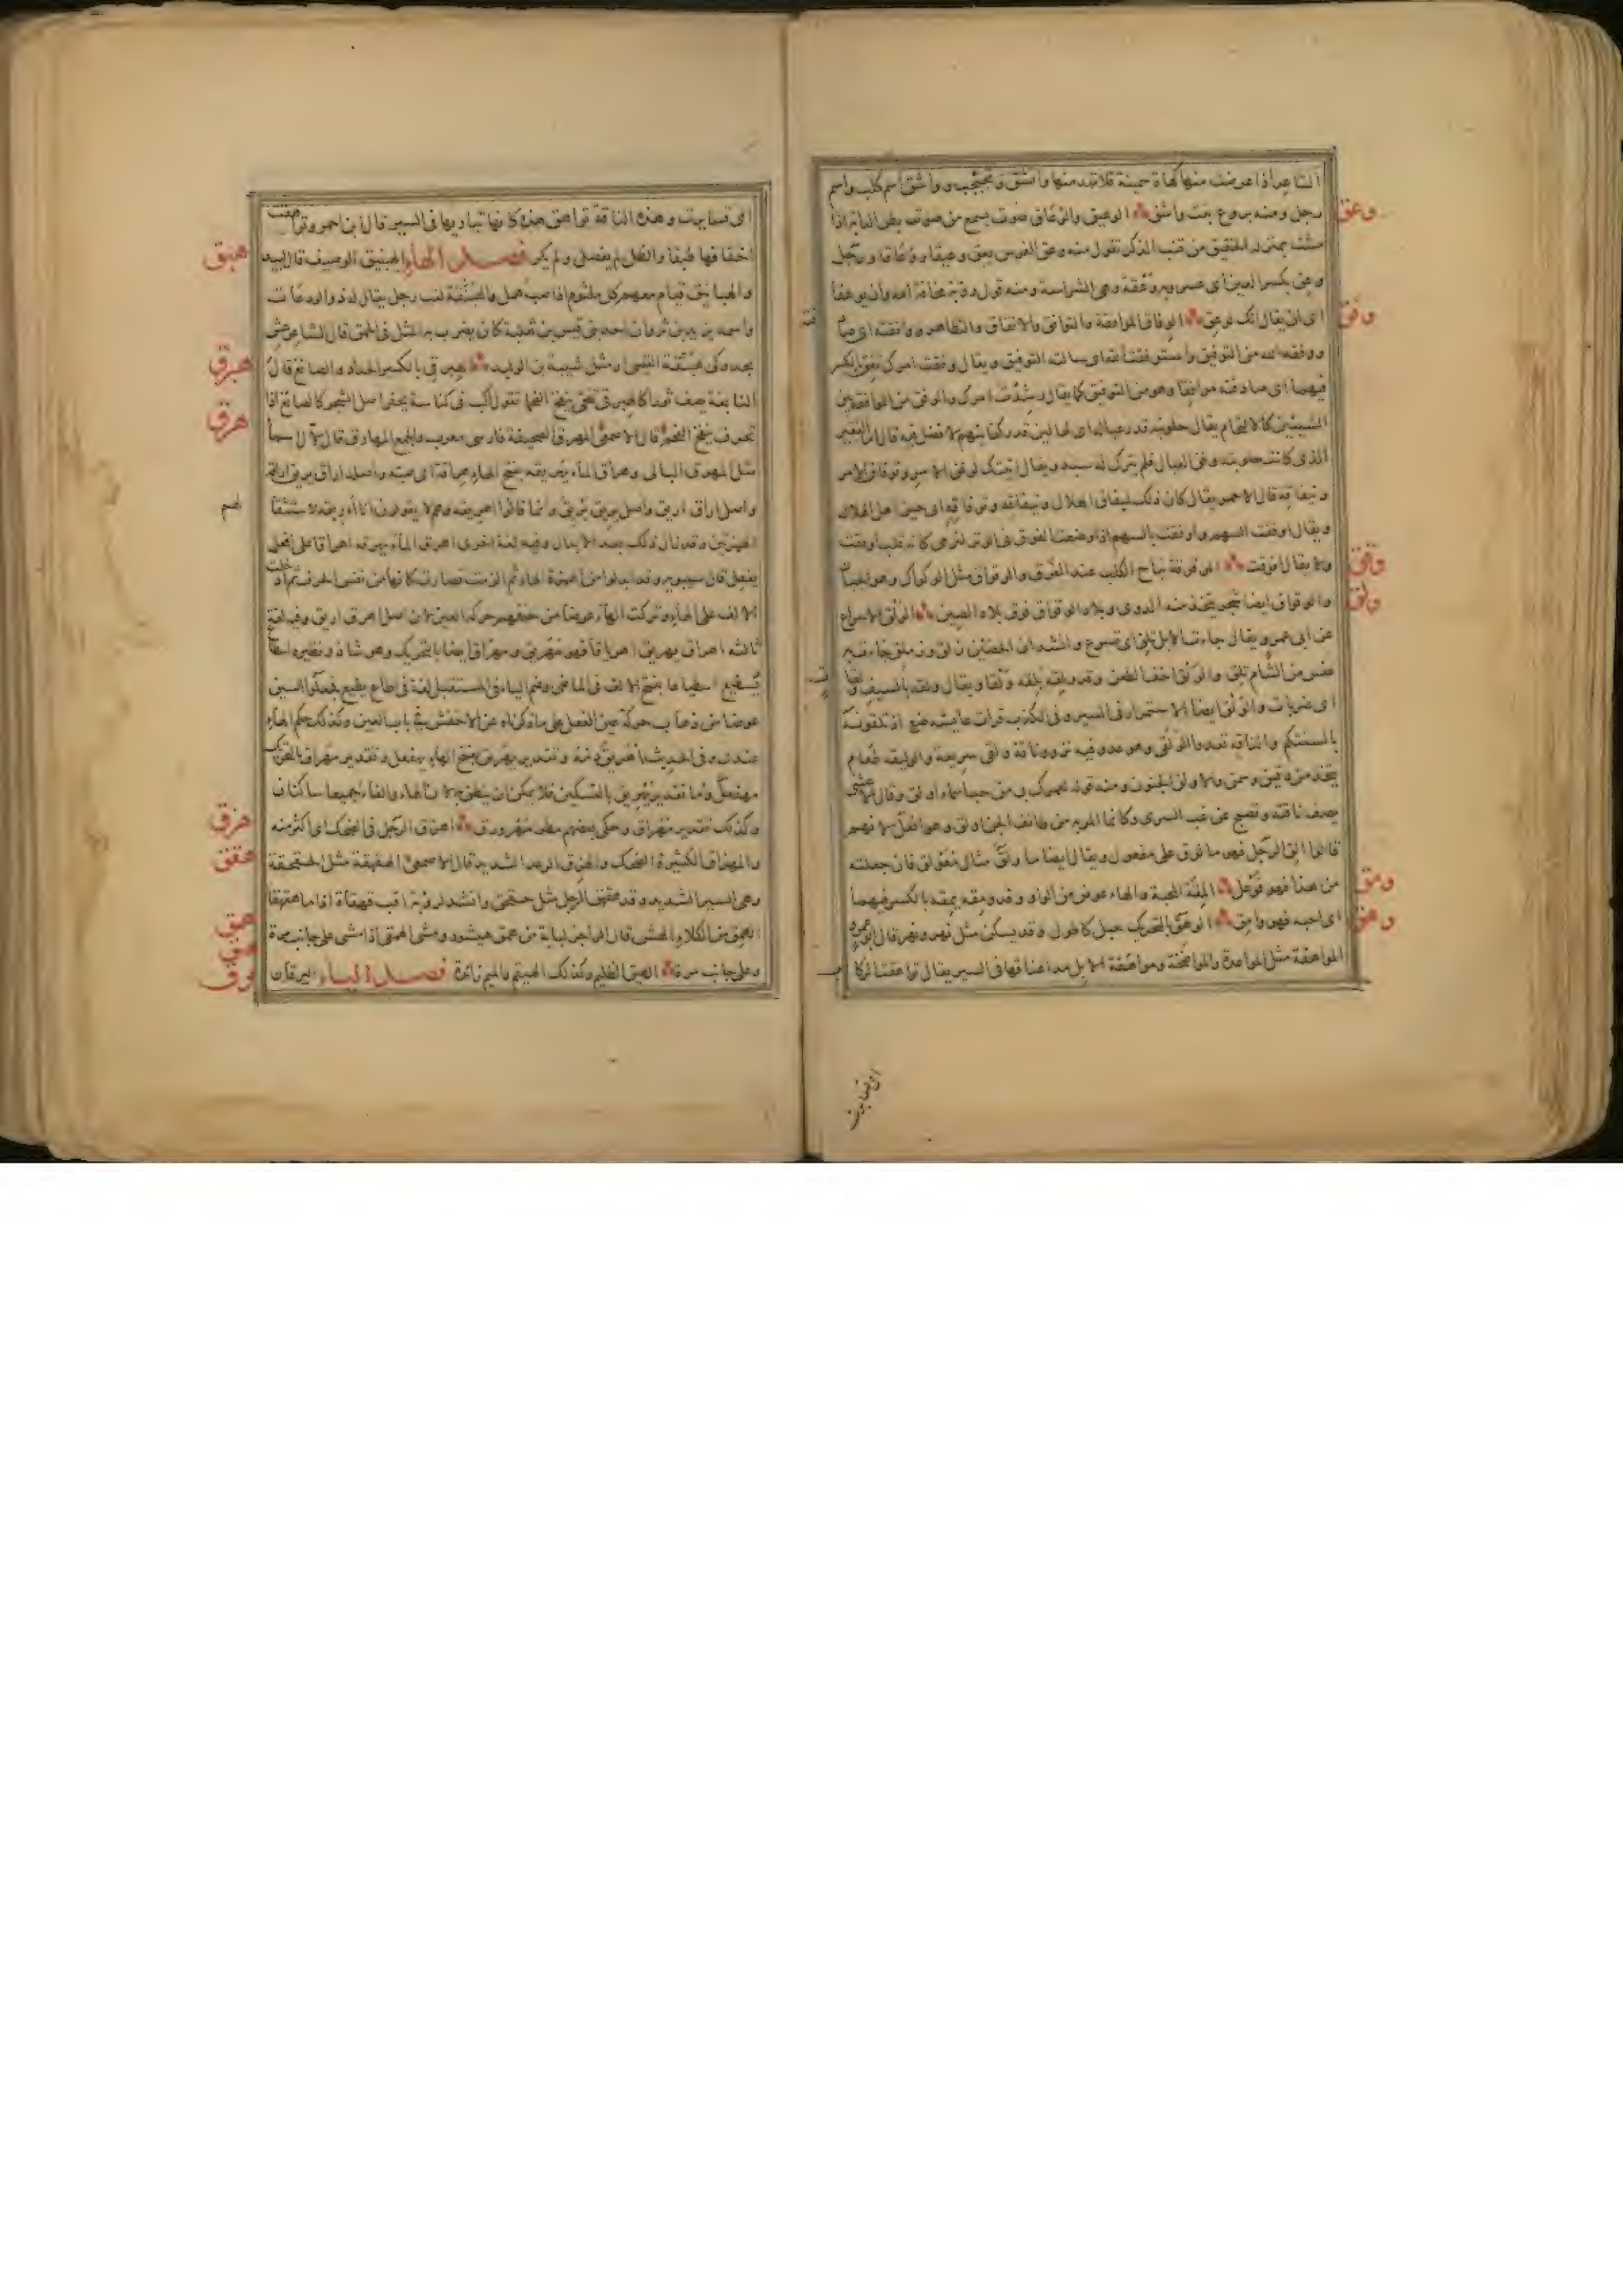 الشاعر اذا عرضت منها كهاة سمينة فلا تهد منها واتشق وتجبجب وواشق اسم كلب واسم
وعق
رجل ومنه بروع بنت واشق الوعيق والوعاق صوت يسمع من صوت بطن الدابة اذا
مشت بمنزلة الخقيق من قنب الذكر تقول منه وعق الفرس يعق وعيقا ووعاقا ورجل
وعق بكسر العين اى عسر وبه وعقة وهى الشراسة ومنه قول رؤبة مخافة الله وان يوعقا
وفق
اى ان يقال انك لوعق الوفاق الموافقة والتوافق والاتفاق والتظاهر ووافقته اى صا
ووفقه الله من التوفيق واستوفقت الله اى سالته التوفيق ويقال وفقت امرك تفق بالكسر
فيهما اى صادفته موافقا وهو من التوفيق كما يقال رشدت امرك والوفق من الموافقة بين
الشيئين كالالتحام يقال حلوبته قدر عياله اى لها لبن قدر كفايتهم لا فضل فيه قال اما الفقير
الذى كانت حلوبته وفق العيال فلم يترك له سبد ويقال اتيتك لوفق الامر وتوفاق الامر
وتيفاقه قال الاحمر يقال كان ذلك لتيفاق الهلال وتيفاقه وتوفاقه اى حين اهل الهلال
ويقال اوفقت السهم واوفقت بالسهم اذا وضعت الفوق فى الوتر لترمى كانه قلب افوقت
وقق
ولا يقال افوقت الوقوقة نباح الكلب عند الفرق والوقواق مثل الوكواك وهو الجبا
ولق
والوقواق ايضا شجر يتخذ منه الدوى وبلاد الوقواق فوق بلاد الصين الولق الاسراع
عن ابى عمرو يقال جاءت الابل تلق اى تسرع وانشد ان الحصين زلق وزملق جاءت به
عنس من الشام تلق والولق اخف الطعن وقد ولقه يلقه ولقا ويقال ولقه بالسيف ولقا
اى ضربات والولق ايضا الاستمرار فى السير وفى الكذب قرات عايشه رضع اذ تلقونه
بالسنتكم والناقة تعدو الولقى وهو عدو فيه نزو وناقة ولقى سريعة والوليقه طعام
يتخذ من دقيق وسمن ولبن والاولق الجنون ومنه قوله لعمرك بى من حب اسماء اولق وقال الاعشى
يصف ناقته وتصبح عن غب السرى وكانما الم بها من طائف الجن اولق وهو افعل لانهم
قالوا الق الرجل فهو مالوق على مفعول ويقال ايضا مأولق مثال معولق فان جعلته
ومق
من هذا فهو فوعل المقة المحبة والهاء عوض من الواو وقد ومقه يمقه بالكسر فيهما
وهق
اى احبه فهو وامق الوهق بالتحريك حبل كالطول وقد يسكن مثل نهر ونهر قال ابو عمرو
المواهقة مثل المواعدة والمواضخة ومواهقة الابل مد اعناقها فى السير يقال تواهقت الركا
اى تسايرت
اى تسايرت وهذه الناقة تواهق هذه كانها تباريها فى السير قال ابن احمر وتواهقت
هبق
اخفافها طبقا والظل لم يفضل ولم يكر فصل الهاء الهبنيق الوصيف قال لبيد
والهبانيق قيام معهم كل ملثوم اذا صب همل والهبنقة لقب رجل يقال له ذو الودعات
واسمه يزيد بن ثروان احد بنى قيس بن ثعلبة كان يضرب به المثل فى الحمق قال الشاعر عش
هبرق
بجد وكن هبنقة القيسى او مثل شيبة بن الوليد الهبرقى بالكسر الحداد والصائغ قال
هرق
النابغة يصف ثورا كالهبرقى تنحى ينفخ الفحما تقول اكب فى كناسه يحفر اصل الشجر كالصائغ اذا
تحرف ينفخ الفحم قال الاصمعى المهرق الصحيفة فارسى معرب والجمع المهارق قال لآل اسما
مثل المهرق البالى وهراق الماء يهريقه بفتح الهاء هراقة اى صبه واصله اراق يريق اراقة
واصل اراق اريق واصل يريق يريق وانما قالوا اهريقه وهم لا يقولون اأريقه لاستثقا
الهمزتين وقد زال ذلك بعد الابدال وفيه لغة اخرى اهرق الماء يهرقه اهراقا على افعل
يفعل قال سيبويه وقد ابدلوا من الهمزة الهاء ثم الزمت فصارت كانها من نفس الحرف ثم ادخلت
الالف على الهاء وتركت الهاء عوضا من حذفهم حركة العين لان اصل اهرق اريق وفيه لغة
ثالثه اهراق يهريق اهرياقا فهو مهريق ومهراق ايضا بالتحريك وهو شاذ ونظيره اسطا
يسطيع اسطياعا بفتح الالف فى الماضى وضم الياء فى المستقبل لغة فى اطاع يطيع فجعلوا السين
عوضا من ذهاب حركة عين الفعل على ما ذكرناه عن الاخفش فى باب العين وكذلك حكم الهاء
عندى وفى الحديث اهريق دمه وتقدير يهريق بفتح الهاء يهفعل وتقدير مهراق بالتحريك
مهفعل واما تقدير يهريق بالتسكين فلا يمكن ان ينطق به لان الهاء والفاء جميعا ساكنان
هزق
وكذلك تقدير مهراق وحكى بعضهم مطر مهرورق اهزق الرجل فى الضحك اى اكثر منه
هقق
والمهزاق الكثيرة الضحك والهزق الرعد الشديد قال الاصمعى الهقهقة مثل الحقحقة
وهى السير الشديد وقد هقهق الرجل مثل حقحق وانشد لرؤبة اقب قهقاه اذا ما هقهقا
همق
الهمق من الكلاء الهش قال الراجز لباية من همق هيشور ومشى الهمقى اذا مشى على جانب مرة
وعلى جانب مرة الهيق الظليم وكذلك الهيقم والميم زائدة فصل الياء اليرقان